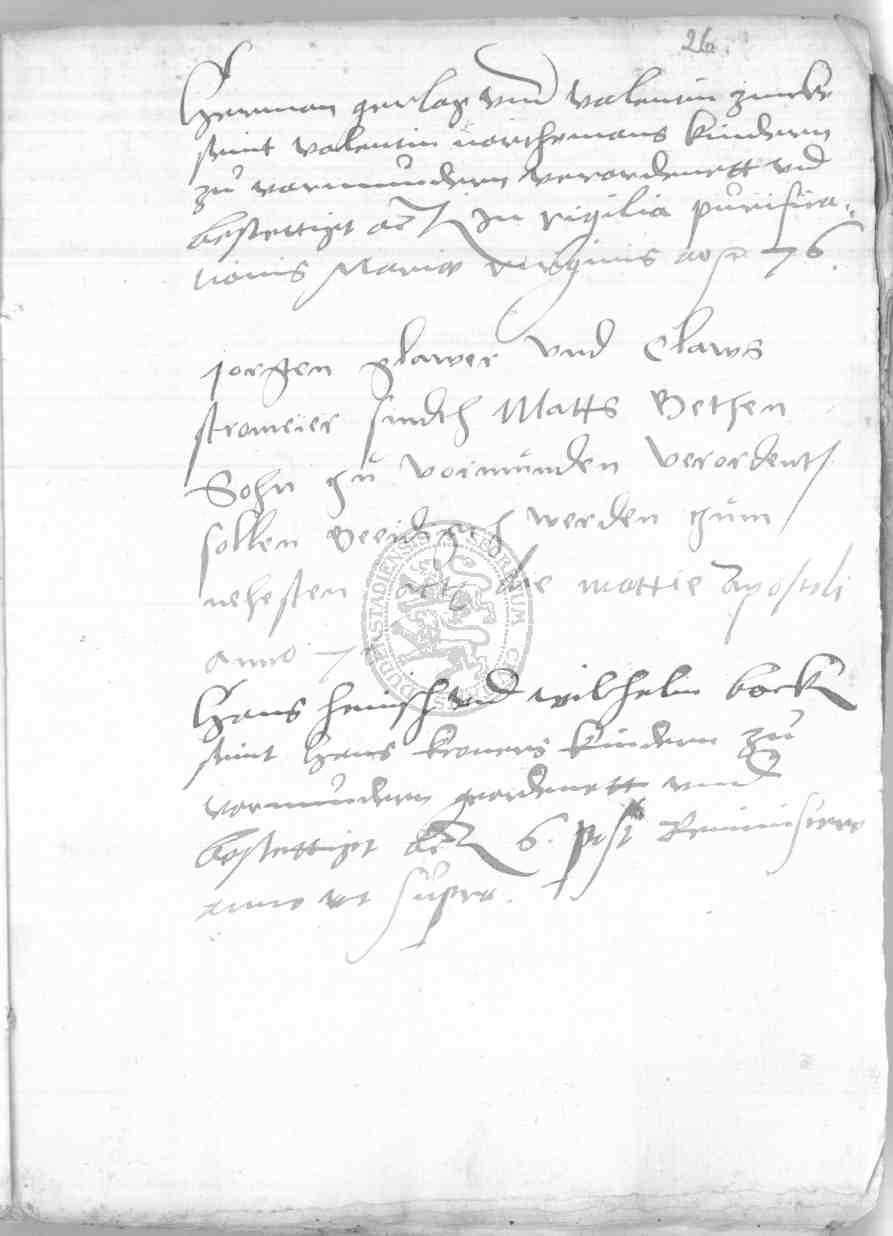 26.
Herman gerlag vnd valentin zincke
seint valentin northemans kindern
zů vormundern verordenett vnd
bestettigt act In vigilia purifica-
tionis Mariae virginis ao 76.
Jorgen glawer vnd Claws
stromeier sindth Matts Bethen
Sohn zu vormunden verordent
sollen Beeidigth werden zum
nehesten act die mattie apostoli
anno
Hans heinisch vnd wilhelm bock
seint Hans kroners kindern zů
vormundern geordenett vnnd
bestettigt act 6. post Reminiscere
anno vt supra.